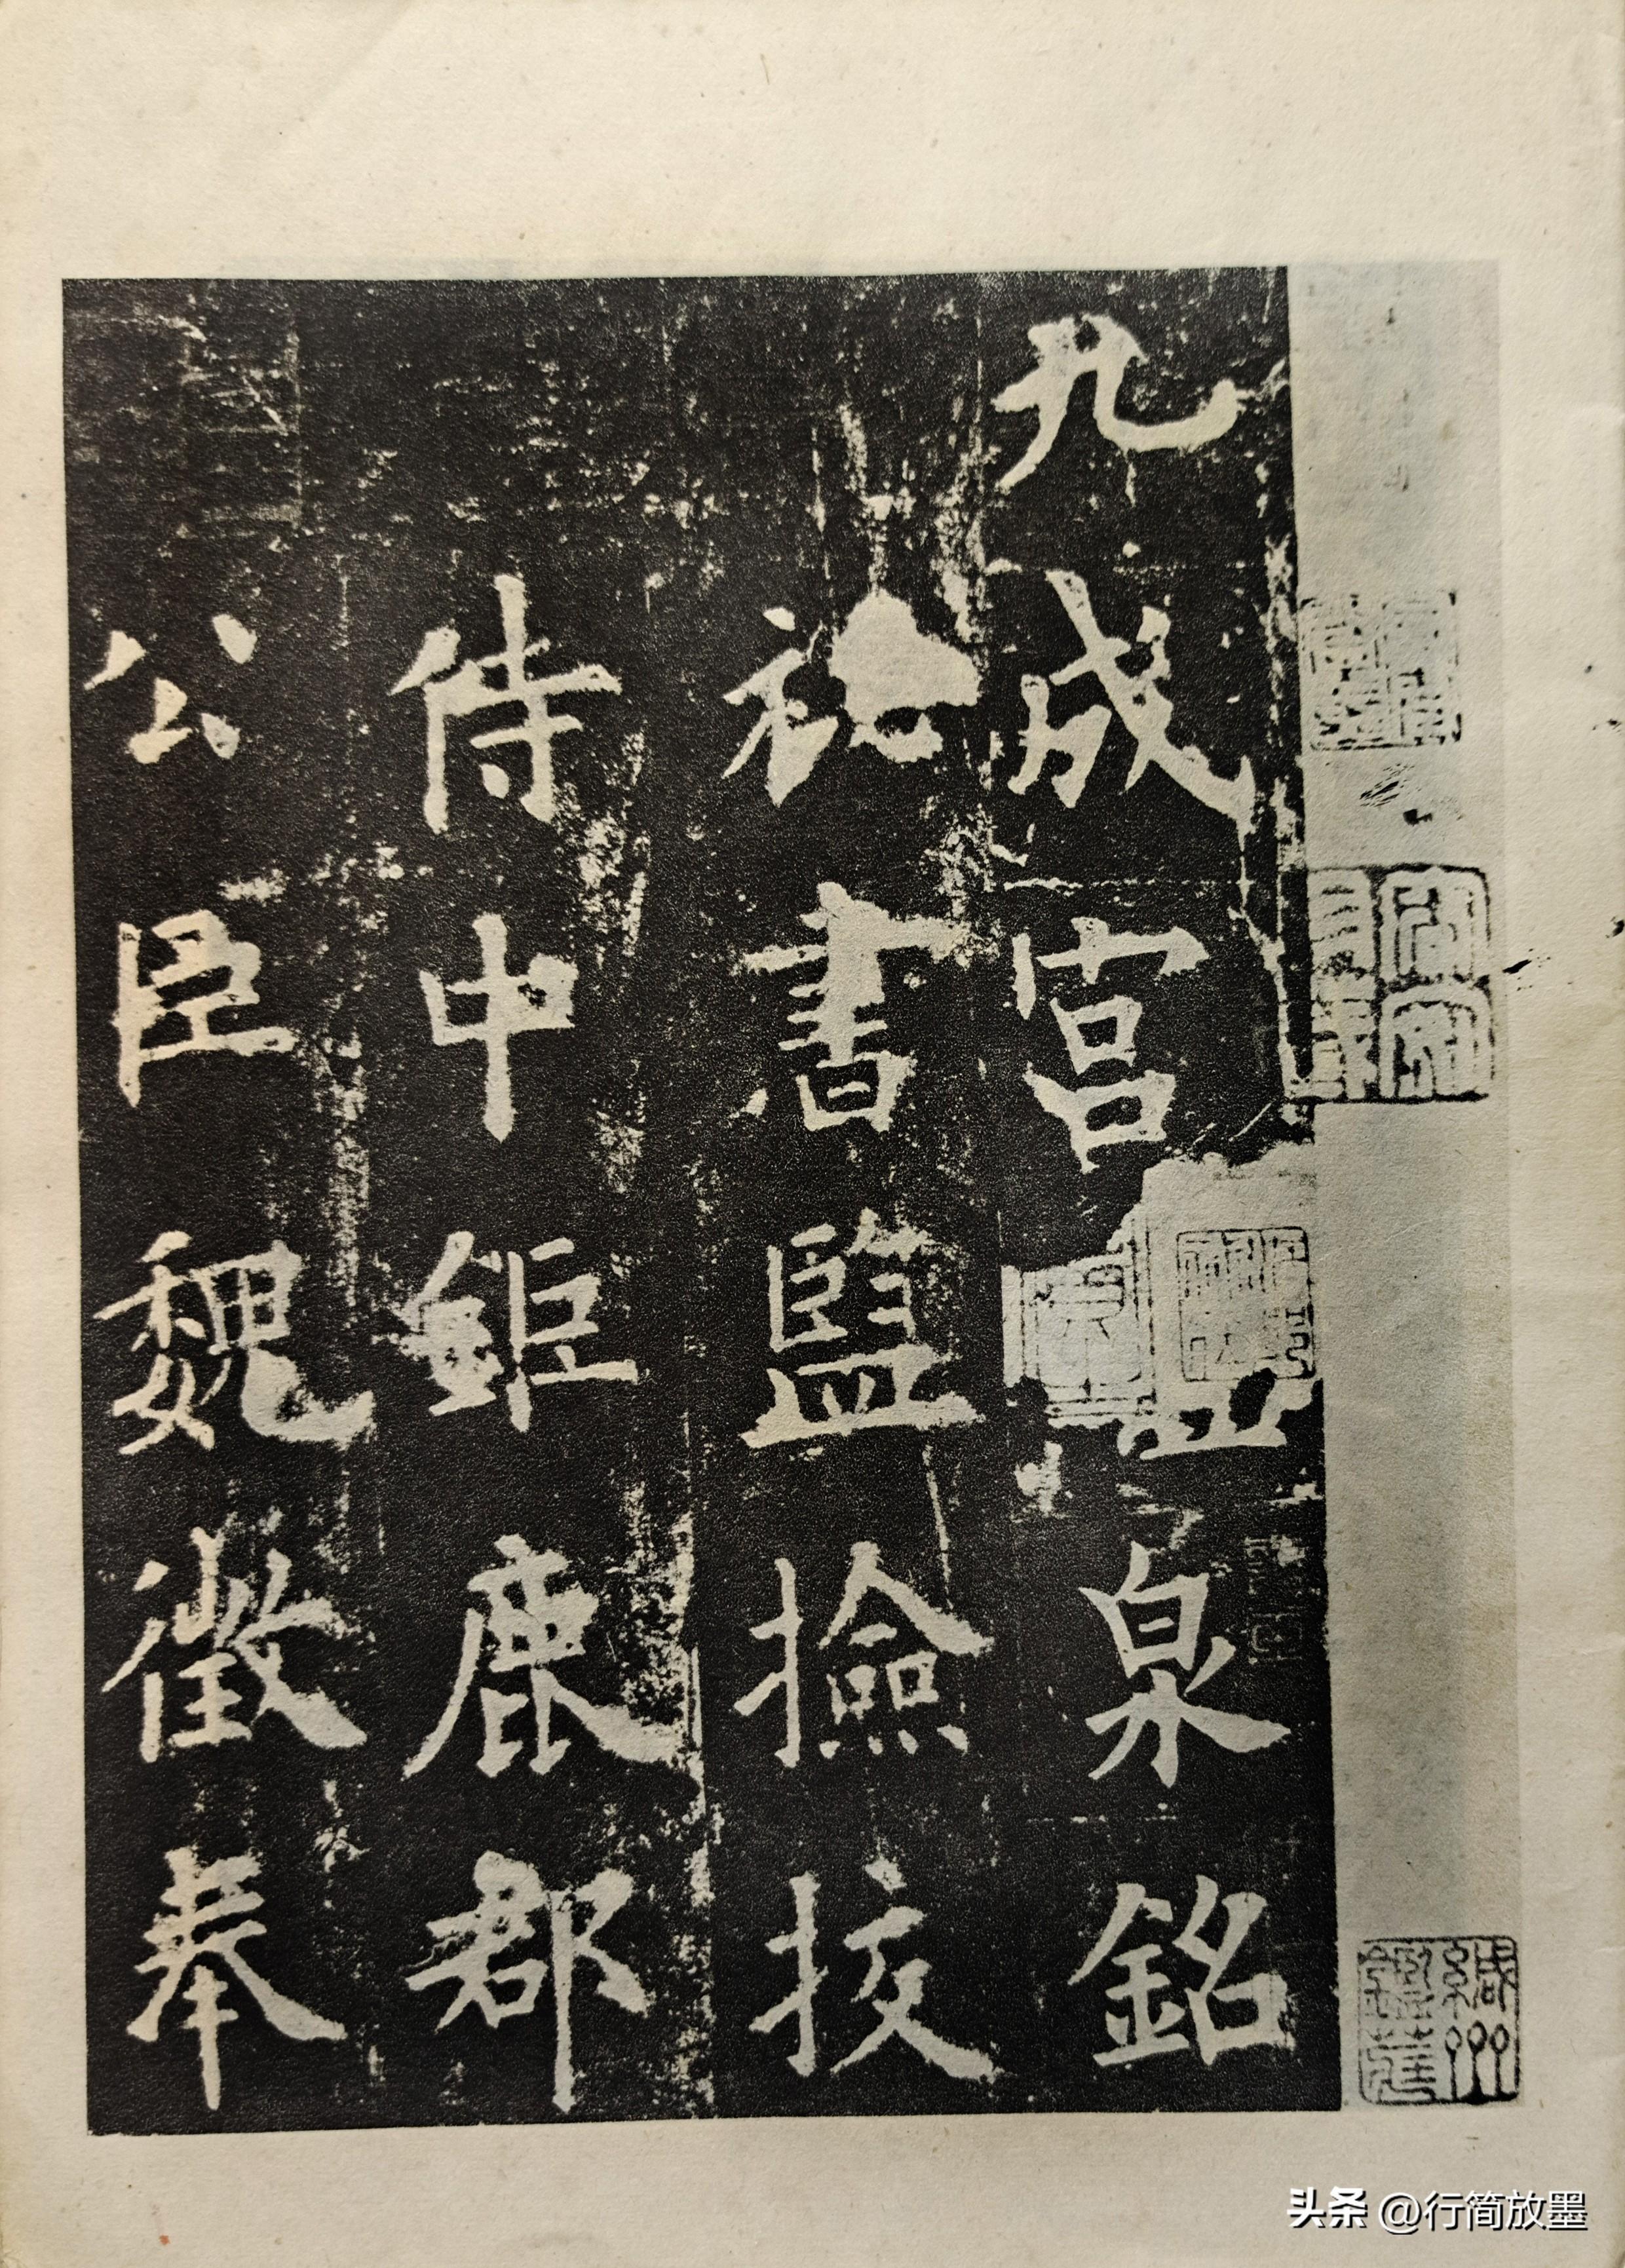 九成宮泉銘
書監撿挍
侍中鉅鹿郡
公臣魏徵奉
头条 @行简放墨